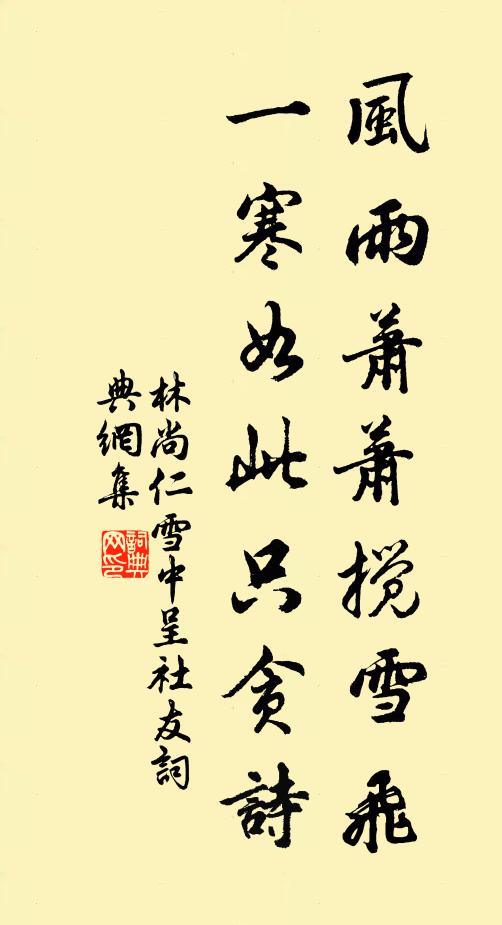 風雨蕭蕭攪雪飛
一寒如此只貪詩
林尚仁雪中呈社友詞
典網集
詞典
网印